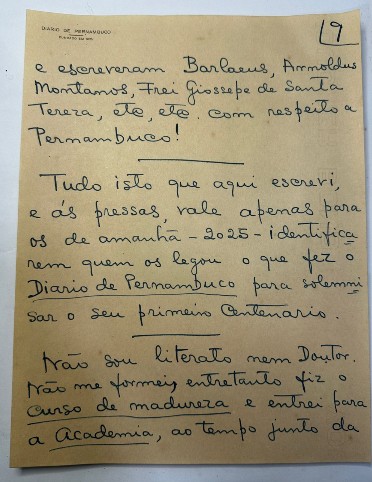 DIARIO DE PERNAMBUCO
FUNDADO EM 1825
9
e escreveram Barlaeus, Arnoldus
Montanos, Frei Giossepe de Santa
Tereza, etc, etc. com respeito a
Pernambuco!
Tudo isto que aqui escrevi,
e ás pressas, vale apenas para
os de amanhã - 2025 - identifica
rem quem os legou o que fez o
Diario de Pernambuco para solemni
sar o seu primeiro Centenario.
Não sou literato nem Doutor.
Não me formei, entretanto fiz o
curso de madureza e entrei para
a Academia, ao tempo junto da